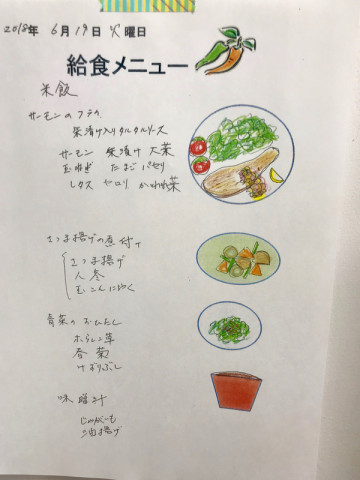 2018年 6月19日 火曜日
給食メニュー
米飯
サーモンのソテー
柴漬け入りタルタルソース
サーモン 柴漬け 大葉
玉ねぎ たまご パセリ
レタス セロリ かいわれ菜
さつま揚げの煮付け
さつま揚げ
人参
玉こんにゃく
青菜のおひたし
ホウレン草
春菊
けずりぶし
味噌汁
じゃがいも
油揚げ